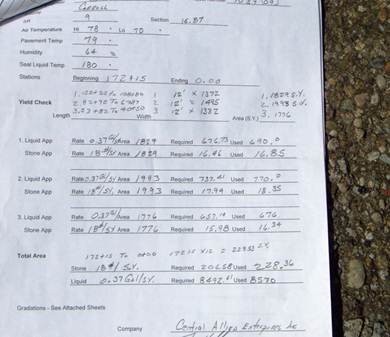 Carroll
9 Section 16.87
Air Temperature Hi 78 Lo 75
Pavement Temp 79
Humidity 64 %
Seal Liquid Temp 180
Stations Beginning 172+15 Ending 0.00
12' x 1372 1. 1829 S.Y.
Yield Check 2 12' x 1495 2. 1993 S.Y.
Length Width 3 12' x 1332 Area (S.Y.) 3. 1776
1. Liquid App Rate 0.37 G/SY Area 1829 Required 676.73 Used 690.0
Stone App Rate 18#/SY Area 1829 Required 16.46 Used 16.85
2. Liquid App Rate 0.37 G/SY Area 1993 Required 737.41 Used 770.0
Stone App Rate 18#/SY Area 1993 Required 17.94 Used 18.35
3. Liquid App Rate 0.37 G/SY Area 1776 Required 657.12 Used 676
Stone App Rate 18#/SY Area 1776 Required 15.98 Used 16.34
Total Area 172+15 To 0+00 17215 x12 = 22953 S.Y.
Stone 18#/S.Y. Required 206.58 Used 228.36
Liquid 0.37 Gal/SY. Required 8492.61 Used 8570
Gradations - See Attached Sheets
Company Central Allied Enterprises Inc